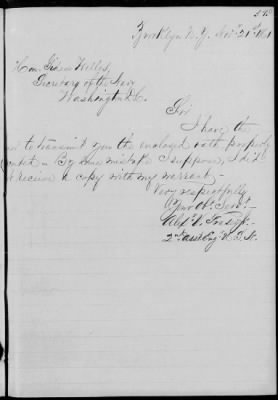 Brooklyn N.Y. Nov. 21st 1861
Hon. Gideon Welles,
Secretary of the Navy
Washington D.C.
Sir
I have the
to transmit you the enclosed oath properly
By some mistake I suppose, I did
receive a copy with my warrant—
Very respectfully
Your Obt. Servt.—
Alex. V.
2nd Asst Eng. U.S.N.